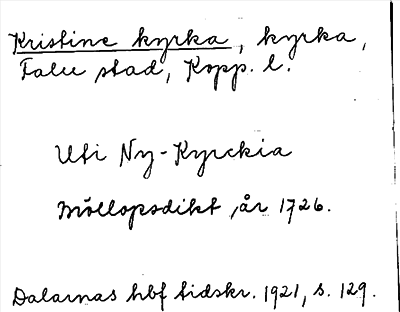 Kristine kyrka, kyrka,
Falu stad, Kopp. l.
Uti Ny-Kyrckia
Bröllopsdikt, år 1726.
Dalarnas hbf tidskr. 1921, s. 129.